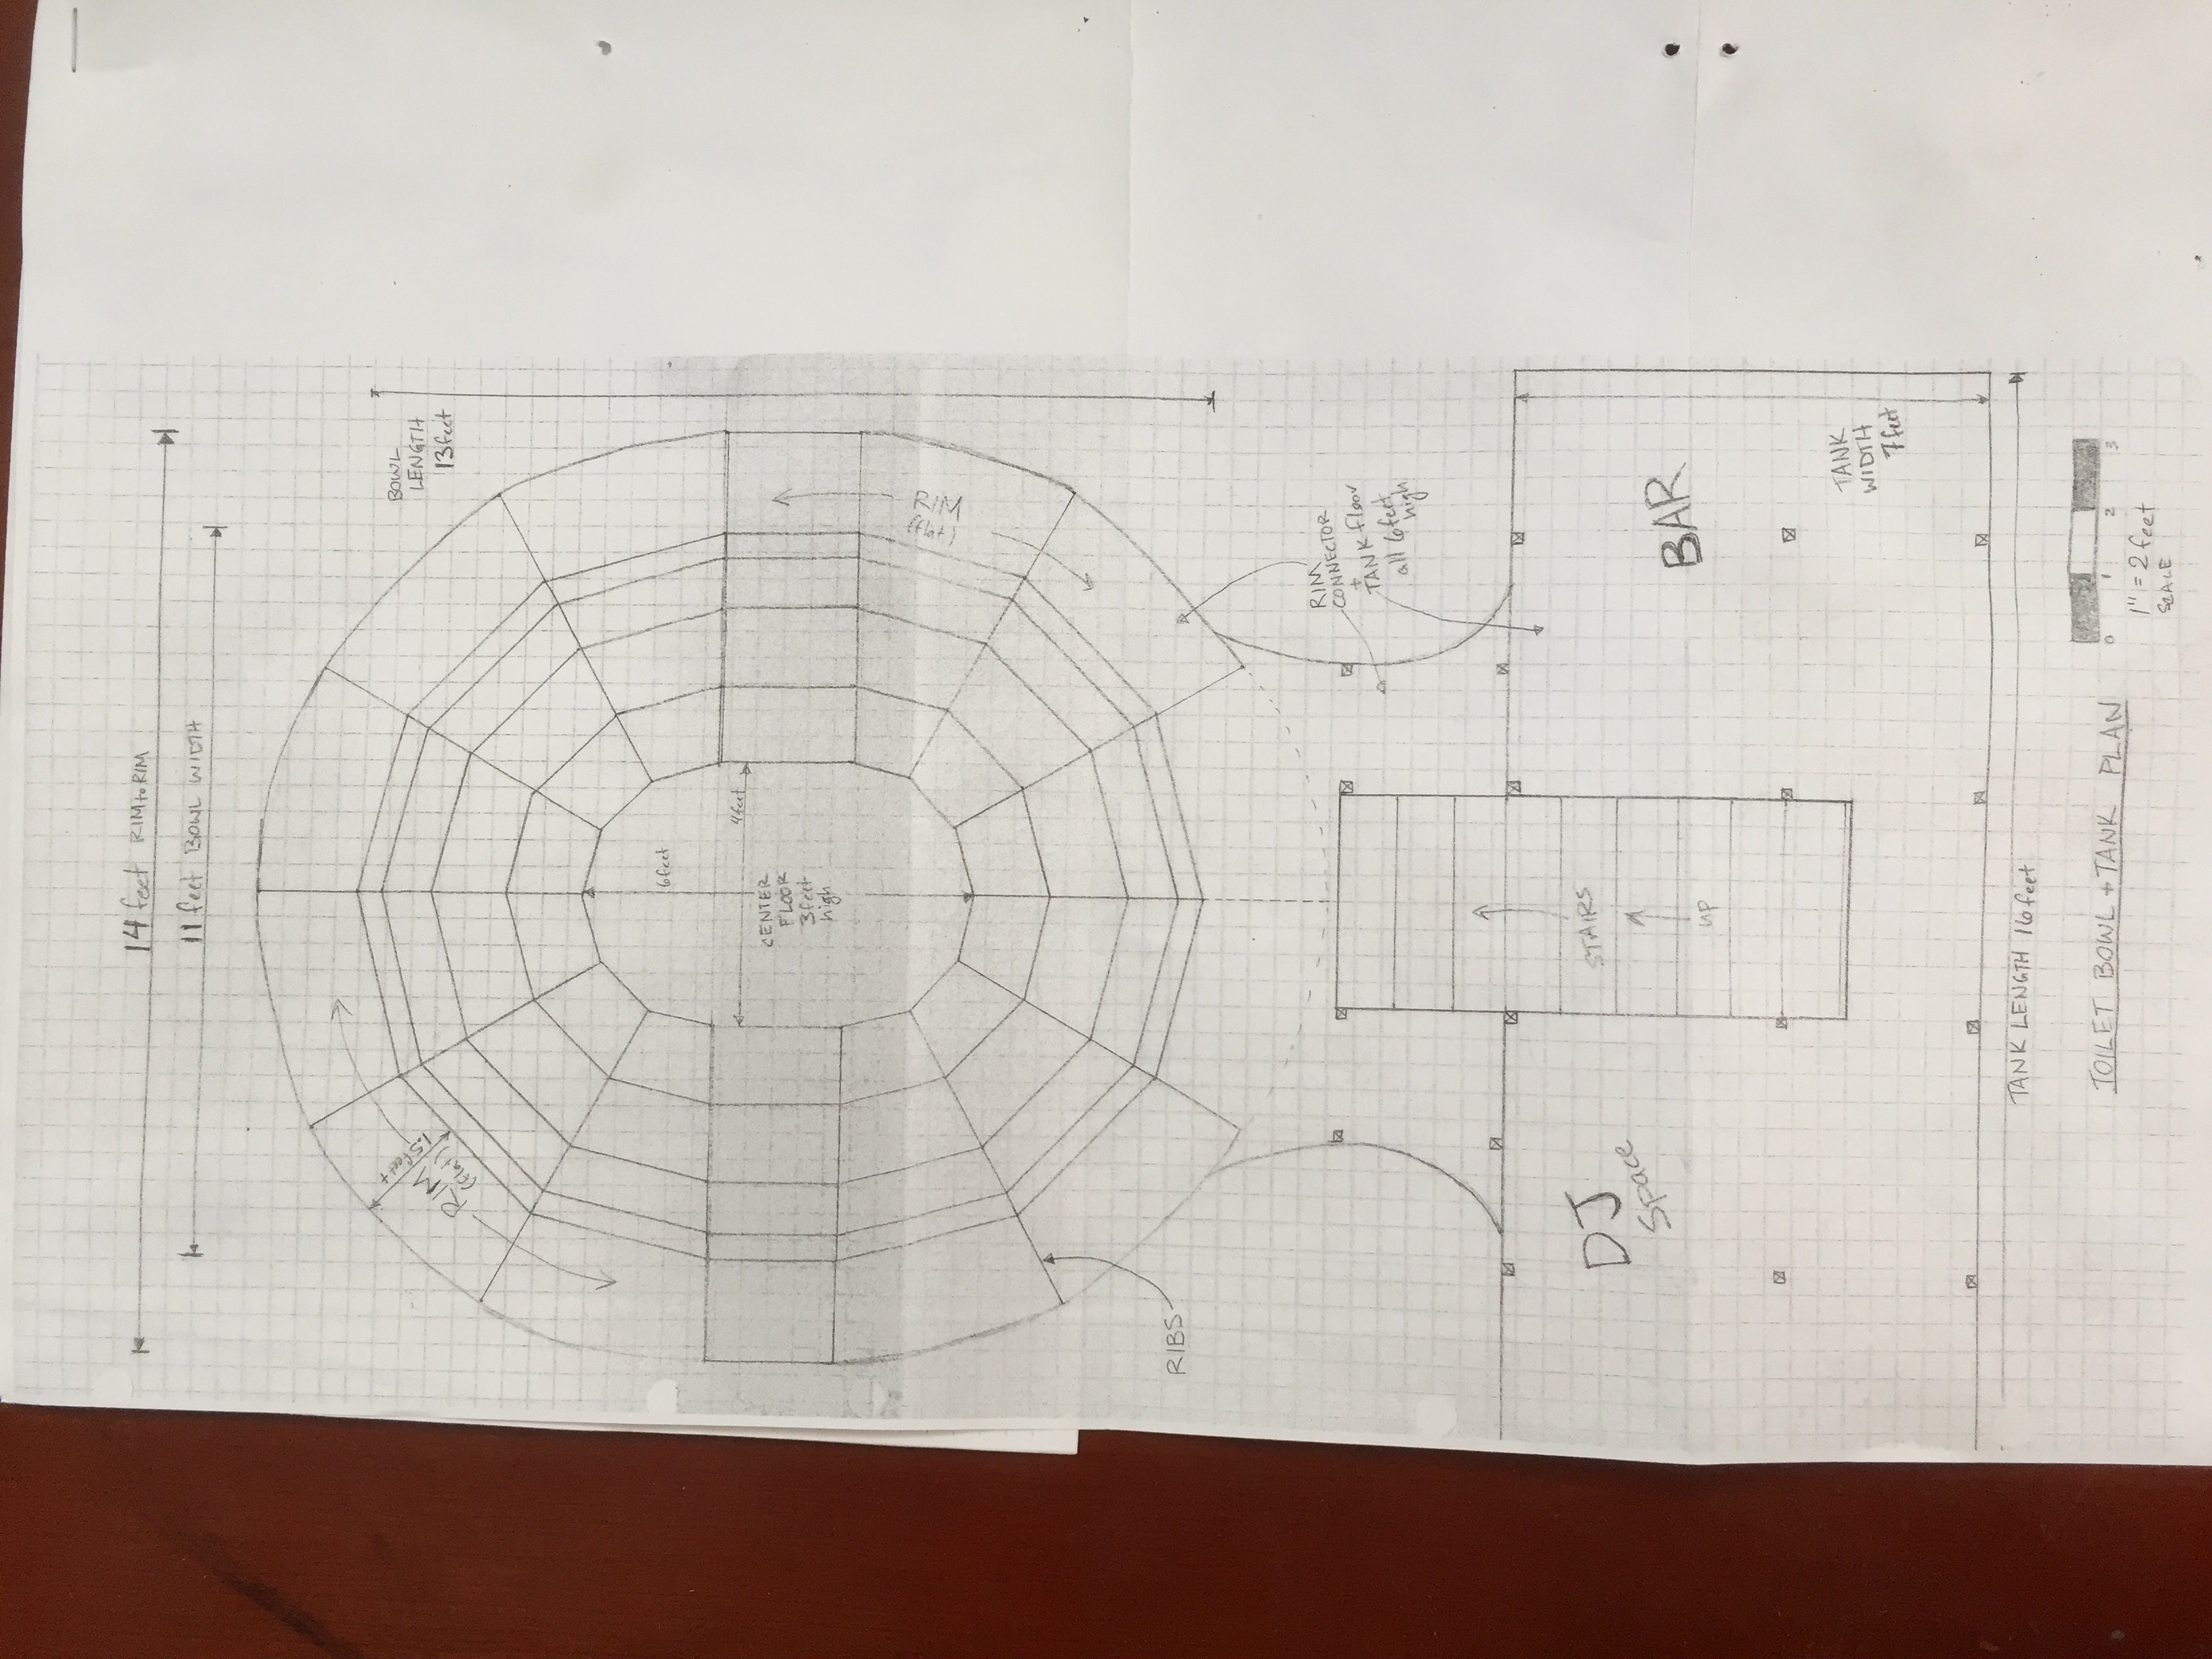 14 feet RIM to RIM
11 feet BOWL WIDTH
BOWL
LENGTH
13 feet
1.5 feet
RIM
(flat)
6 feet
4 feet
CENTER
FLOOR
3 feet
high
RIM
(flat)
RIBS
RIM
CONNECTOR
+
TANK floor
all 6 feet
high
DJ
Space
STAIRS
up
BAR
TANK
WIDTH
7 feet
TANK LENGTH 16 feet
TOILET BOWL + TANK PLAN
0 1 2 3
1" = 2 feet
SCALE